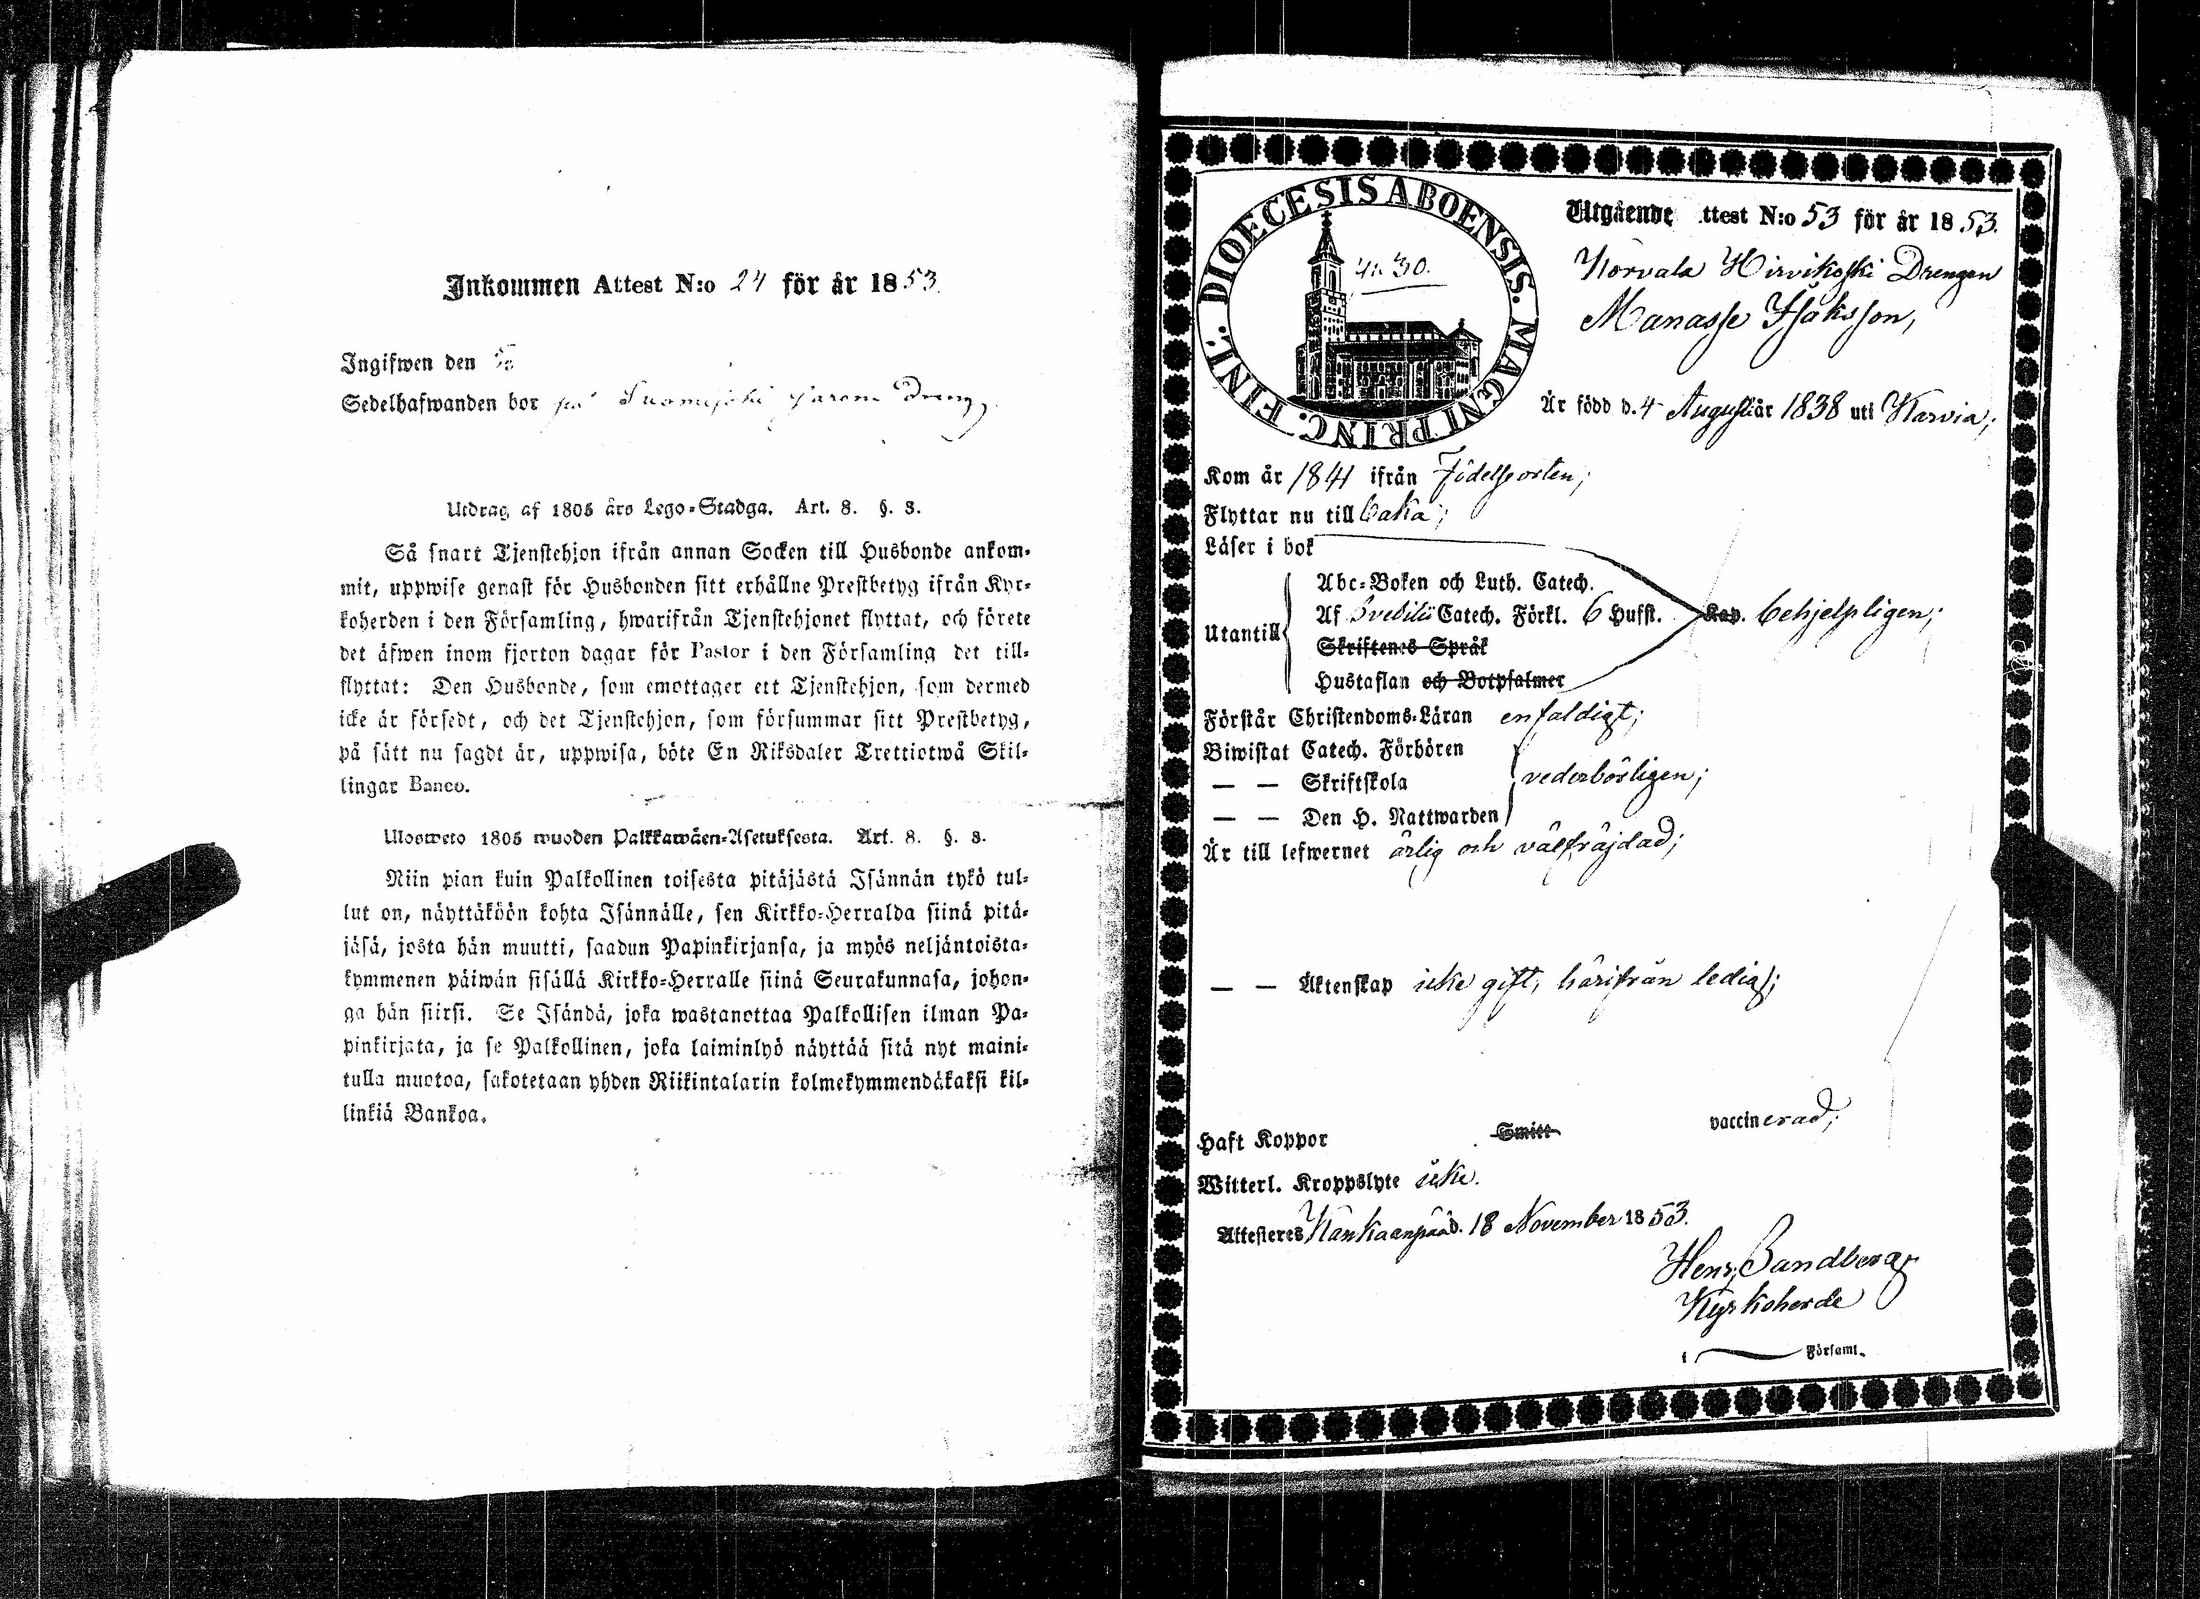 Inkommen Attest N:o 24 för år 1853.
Ingifwen den
Sedelhafwanden bor på Suomijoki Dreng
Utdrag af 1805 års Lego-Stadga. Art. 8. §. 3.
Så snart Tjenstehjon ifrån annan Socken till Husbonde ankom-
mit, uppwise genast för Husbonden sitt erhållne Prestbetyg ifrån Kyr-
koherden i den Församling, hwarifrån Tjenstehjonet flyttat, och förete
det äfwen inom fjorton dagar för Pastor i den Församling det till-
flyttat: Den Husbonde, som emottager ett Tjenstehjon, som dermed
icke är försedt, och det Tjenstehjon, som försummar sitt Prestbetyg,
på sätt nu sagdt är, uppwisa, böte En Riksdaler Trettiotwå Skil-
lingar Banco.
Ulosweto 1805 wuoden Palkkawäen-Asetuksesta. Art. 8. §. 3.
Niin pian kuin Palkollinen toisesta pitäjästä Isännän tykö tul-
lut on, näyttäköön kohta Isännälle, sen Kirkko-Herralda siinä pitä-
jäsä, josta hän muutti, saadun Papinkirjansa, ja myös neljäntoista-
kymmenen päiwän sisällä Kirkko-Herralle siinä Seurakunnasa, johon-
ga hän siirsi. Se Isändä, joka wastanottaa Palkollisen ilman Pa-
pinkirjata, ja se Palkollinen, joka laiminlyö näyttää sitä nyt maini-
tulla muotoa, sakotetaan yhden Riikintalarin kolmekymmendäkaksi kil-
linkiä Bankoa.
DIOECESIS ABOENSIS. MAGNI PRINC. FINL.
30.
Utgående ttest N:o 53 för år 1853.
Korvala Hirvikoski Drengen
Manasse Isaksson,
Är född d. 4 Augusti år 1838 uti Karvia;
Kom år 1841 ifrån Födelseorten;
Flyttar nu till
Läser i bok
Abc-Boken och Luth. Catech.
Utantill Af Svebilii Catech. Förkl. 6 Hufst. Kap. behjelpligen;
Skriftenes Språk
Hustaflan och Botpsalmer
Förstår Christendoms-Läran enfaldigt;
Biwistat Catech. Förhören
— — Skriftskola vederbörligen;
— — Den H. Nattwarden
Är till lefwernet ärlig och välfräjdad;
— — Äktenskap icke gift, härifrån ledig;
Haft Koppor Smitt vaccinerad;
Witterl. Kroppslyte icke.
Attesteres Kankaanpää d. 18 November 1853.
Henr. Sandberg
Kyrkoherde
i Församl.